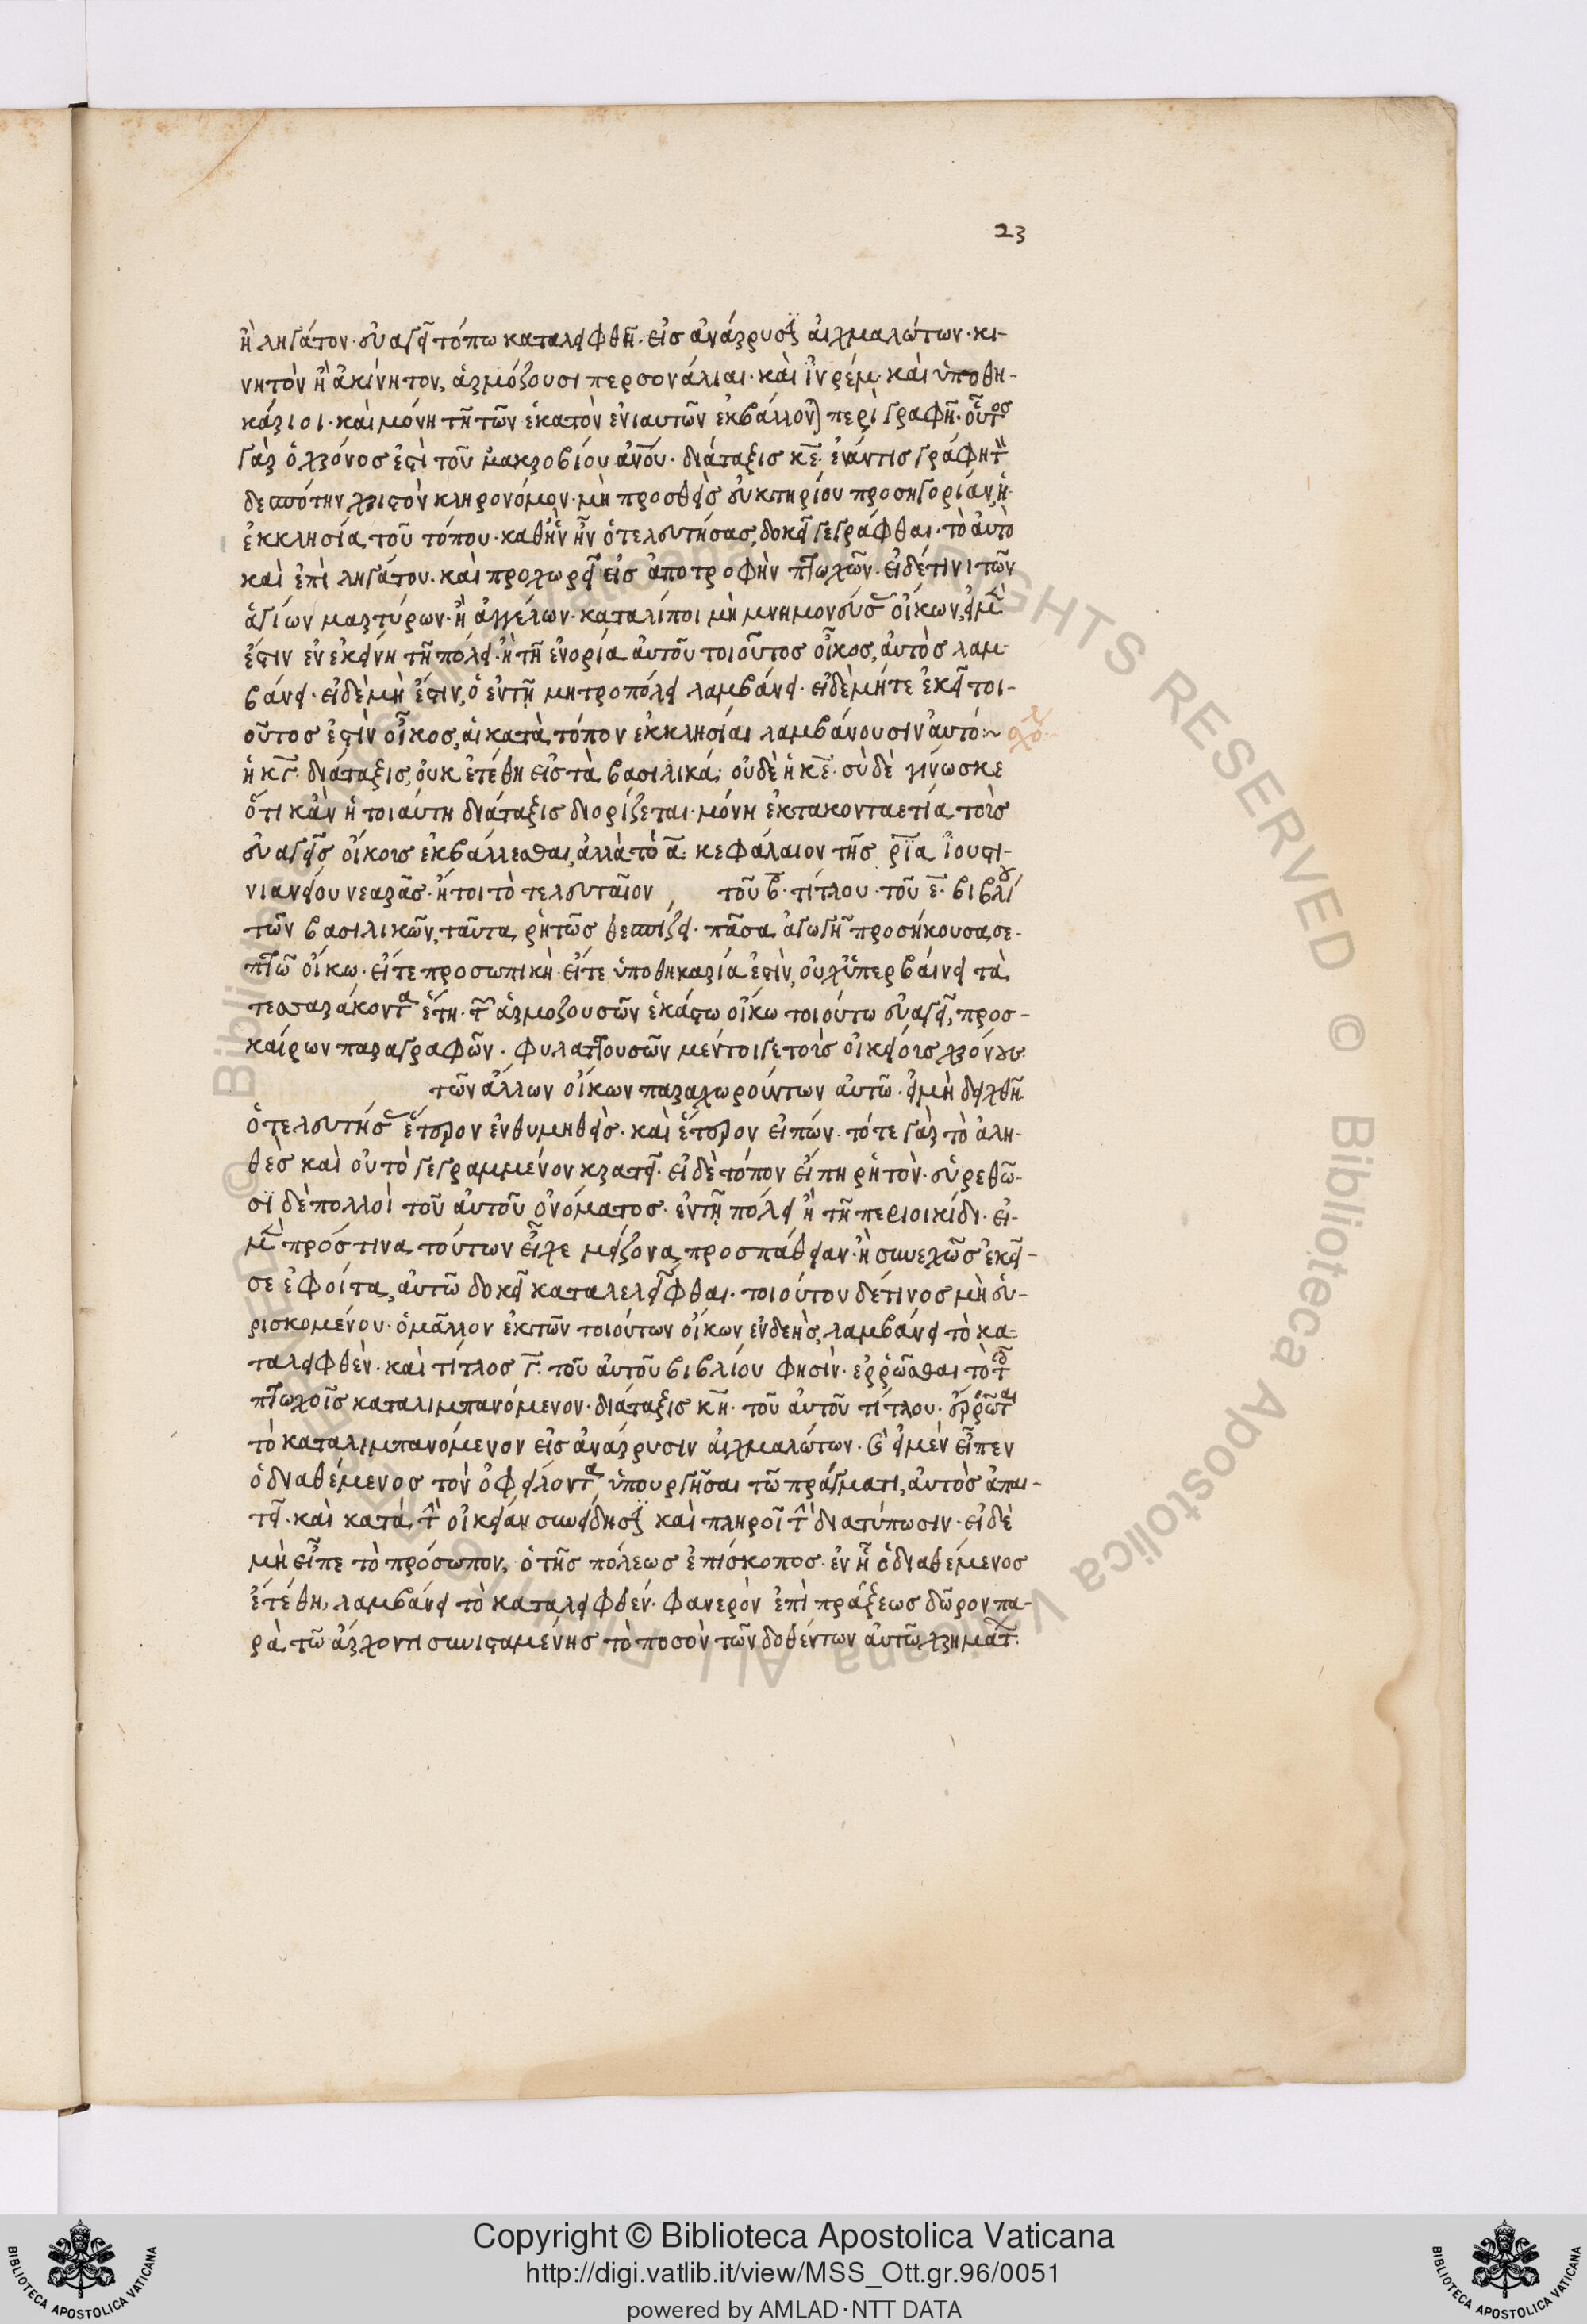 23
ἢ ληγάτον· εὐαγεῖ τόπω καταλειφθῆ· εἰσ ἀνάρρυσιν αἰχμαλώτων· κι-
νητὸν ἢ ἀκίνητον, ἁρμόζουσι περσονάλιαι· καὶ ἲν ρέμ· καὶ ὑποθη-
κάριοι· καὶ μόνη τῆ τῶν ἑκατὸν ἐνιαυτῶν ἐκβάλλονται περιγραφῆ· οὗτος
γὰρ ὁ χρόνοσ ἐστὶ τοῦ μακροβίου ἀνου· διάταξισ κε· ἐνάν τισ γράφη τ
δεσπότην χριστὸν κληρονόμον· μὴ προσθεὶσ εὐκτηρίου προσηγορίαν, ἡ
ἐκκλησία τοῦ τόπου· καθ' ἣν ἦν ὁ τελευτήσασ, δοκεῖ γεγράφθαι· τὸ αὐτὸ
καὶ ἐπὶ ληγάτου· καὶ προχωρεῖ εἰσ ἀποτροφὴν πτωχῶν· εἰ δέ τινι τῶν
ἁγίων μαρτύρων· ἢ ἀγγέλων· καταλίποι μὴ μνημονεύσ οἴκων, εἰ μ
ἔστιν ἐν ἐκείνη τῆ πόλει· ἢ τῆ ἐνορία αὐτοῦ τοιοῦτοσ οἶκοσ, αὐτὸσ λαμ-
βάνει· εἰ δὲ μὴ ἔστιν, ὁ ἐν τῆ μητροπόλει λαμβάνει· εἰ δὲ μήτε ἐκεῖ τοι-
οῦτοσ ἐστὶν οἶκοσ, αἱ κατὰ τόπον ἐκκλησίαι λαμβάνουσιν αὐτό:~
ἡ κγ· διάταξισ, οὐκ ἐτέθη εἰσ τὰ βασιλικά· οὐδὲ ἡ κε· σὺ δὲ γίνωσκε
ὅτι κἂν ἡ τοιαύτη διάταξισ διορίζεται· μόνη ἑκτακονταετία τοῖσ
εὐαγέσ οἴκοισ ἐκβάλλεσθαι, ἀλλὰ τὸ α· κεφάλαιον τῆσ ρια ἰουστι-
νιανείου νεαρᾶσ· ἤτοι τὸ τελευταῖον, τοῦ β· τίτλου· τοῦ ε· βιβλίου
τῶν βασιλικῶν, ταῦτα ῥητῶσ θεσπίζει· πᾶσα ἀγωγὴ προσήκουσα σε-
πτῶ οἴκω· εἴτε προσωπικὴ· εἴτε ὑποθηκαρία ἐστὶν, οὐχ ὑπερβαίνει τὰ
τεσσαράκοντα ἔτη· τ ἁρμοζουσῶν ἑκάστω οἴκω τοιούτω εὐαγεῖ, προσ-
καίρων παραγραφῶν· φυλαττουσῶν μέντοιγε τοῖσ οἰκείοισ χρόνουσ·
τῶν ἄλλων οἴκων παραχωρούντων αὐτῶ· εἰ μὴ δειχθῆ
ὁ τελευτήσ ἕτερον ἐνθυμηθεὶσ· καὶ ἕτερον εἰπών· τότε γὰρ τὸ ἀλη-
θὲσ καὶ οὐ τὸ γεγραμμένον κρατεῖ· εἰ δὲ τόπον εἴπη ῥητὸν· εὑρεθῶ-
σι δὲ πολλοὶ τοῦ αὐτοῦ ὀνόματοσ· ἐν τῆ πόλει ἢ τῆ περιοικίδι· εἰ
μ πρόσ τινα τούτων εἶχε μείζονα προσπάθειαν· ἢ συνεχῶσ ἐκεῖ-
σε ἐφοίτα, αὐτῶ δοκεῖ καταλελεῖφθαι· τοιούτου δέ τινοσ μὴ εὑ-
ρισκομένου· ὁ μᾶλλον ἐκ τῶν τοιούτων οἴκων ἐνδεὴσ, λαμβάνει τὸ κα-
ταλειφθὲν· καὶ τίτλοσ γ· τοῦ αὐτοῦ βιβλίου φησὶν· ἐρρῶσθαι τὸ τοῖσ
πτωχοῖσ καταλιμπανόμενον· διάταξισ κη· τοῦ αὐτοῦ τίτλου· ἔρρωται
τὸ καταλιμπανόμενον εἰσ ἀνάρρυσιν αἰχμαλώτων· καὶ εἰ μὲν εἶπεν
ὁ διαθέμενοσ τὸν ὀφείλοντα ὑπουργῆσαι τῶ πράγματι, αὐτὸσ ἀπαι-
τεῖ· καὶ κατὰ τ οἰκείαν συνείδησιν καὶ πληροῖ τ διατύπωσιν· εἰ δὲ
μὴ εἶπε τὸ πρόσωπον, ὁ τῆσ πόλεωσ ἐπίσκοποσ· ἐν ἧ ὁ διαθέμενοσ
ἐτέθη, λαμβάνει τὸ καταλειφθέν· φανερὸν ἐπὶ πράξεωσ δῶρον πα-
ρὰ τῶ ἄρχοντι συνισταμένησ τὸ ποσὸν τῶν δοθέντων αὐτῶ χρημάτ·
© Biblioteca Apostolica Vaticana ALL RIGHTS RESERVED
Copyright © Biblioteca Apostolica Vaticana
http://digi.vatlib.it/view/MSS_Ott.gr.96/0051
powered by AMLAD·NTT DATA
BIBLIOTECA APOSTOLICA VATICANA
BIBLIOTECA APOSTOLICA VATICANA